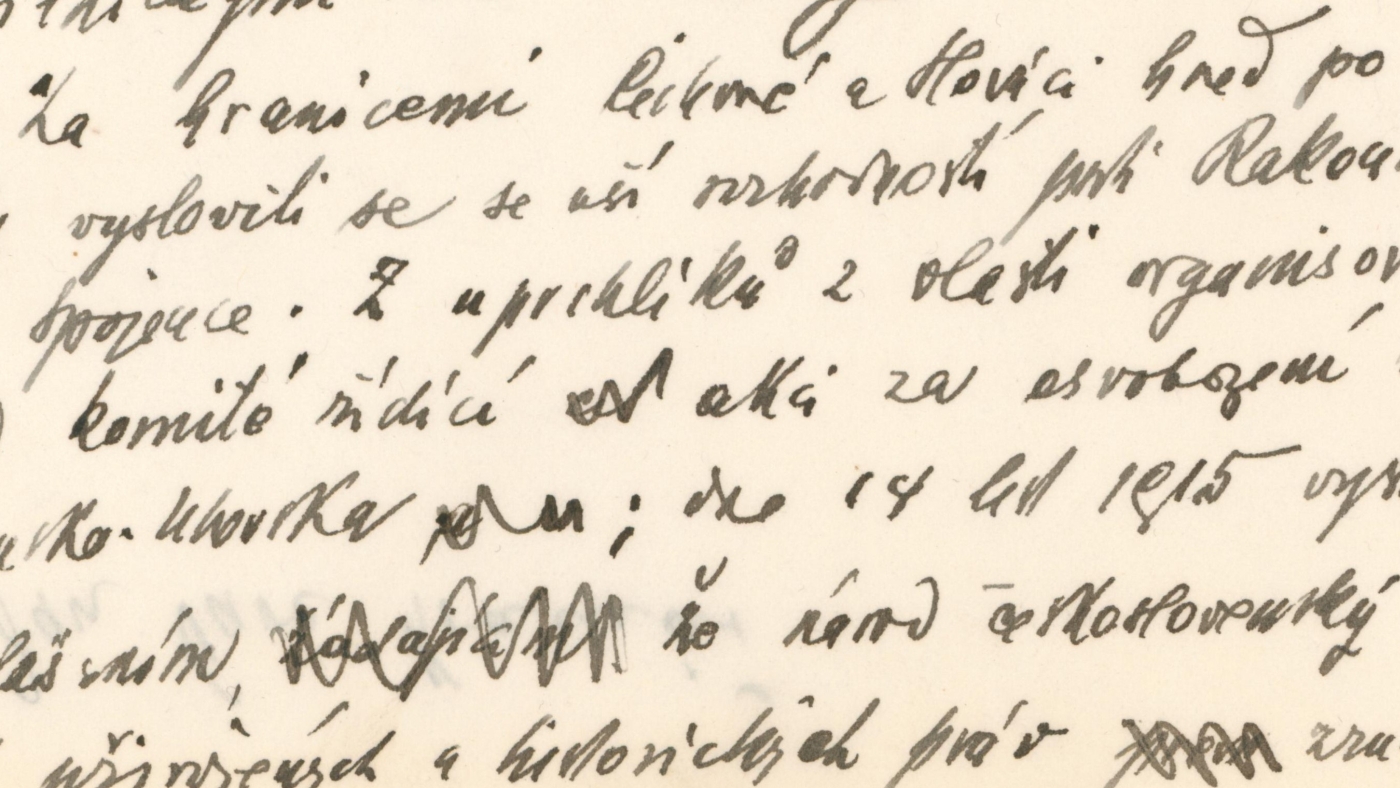 Za hranicemi Čechové a Slováci hned po
vyslovili se se vší rozhodností proti Rakou
spojence. Z uprchlíků z vlasti organisov
komité řídící akci za osvobození
usko-Uhorska ; dne 14 list 1915 vys
lášením, že národ československý
přirozených a historických práv zru